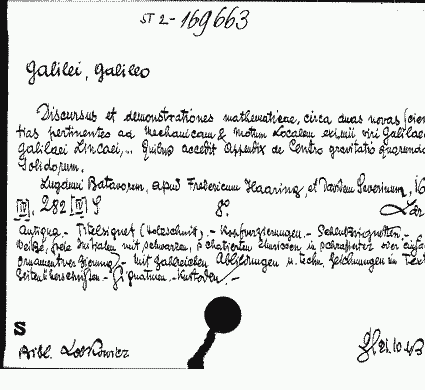 ST 2-169663
Galilei, Galileo
Discursus et demonstrationes mathematicae, circa duas novas scien
tias pertinentes ad Mechanicam & Motum Localem eximii viri Galilaei
Galilaei Lincaei,... Quibus accedit Appendix de Centro gravitatis quorundam
Solidorum.
Lugduni Batavorum, apud Fredericum Haaring, et Davidem Severinum, 16
[IV], 282 [IV] S 8°. Lat
Antiqua.- Titelsignet (Holzschnitt).- Kopfverzierungen.-
Initialen mit schwarzen, in oder
Ornamentverzierung.- Mit zahlreichen Abbildungen u. techn. Zeichnungen im Text
Seitenüberschriften.- Signaturen.- Kustoden.-
S
Bibl. Lobkowicz
21.10.43